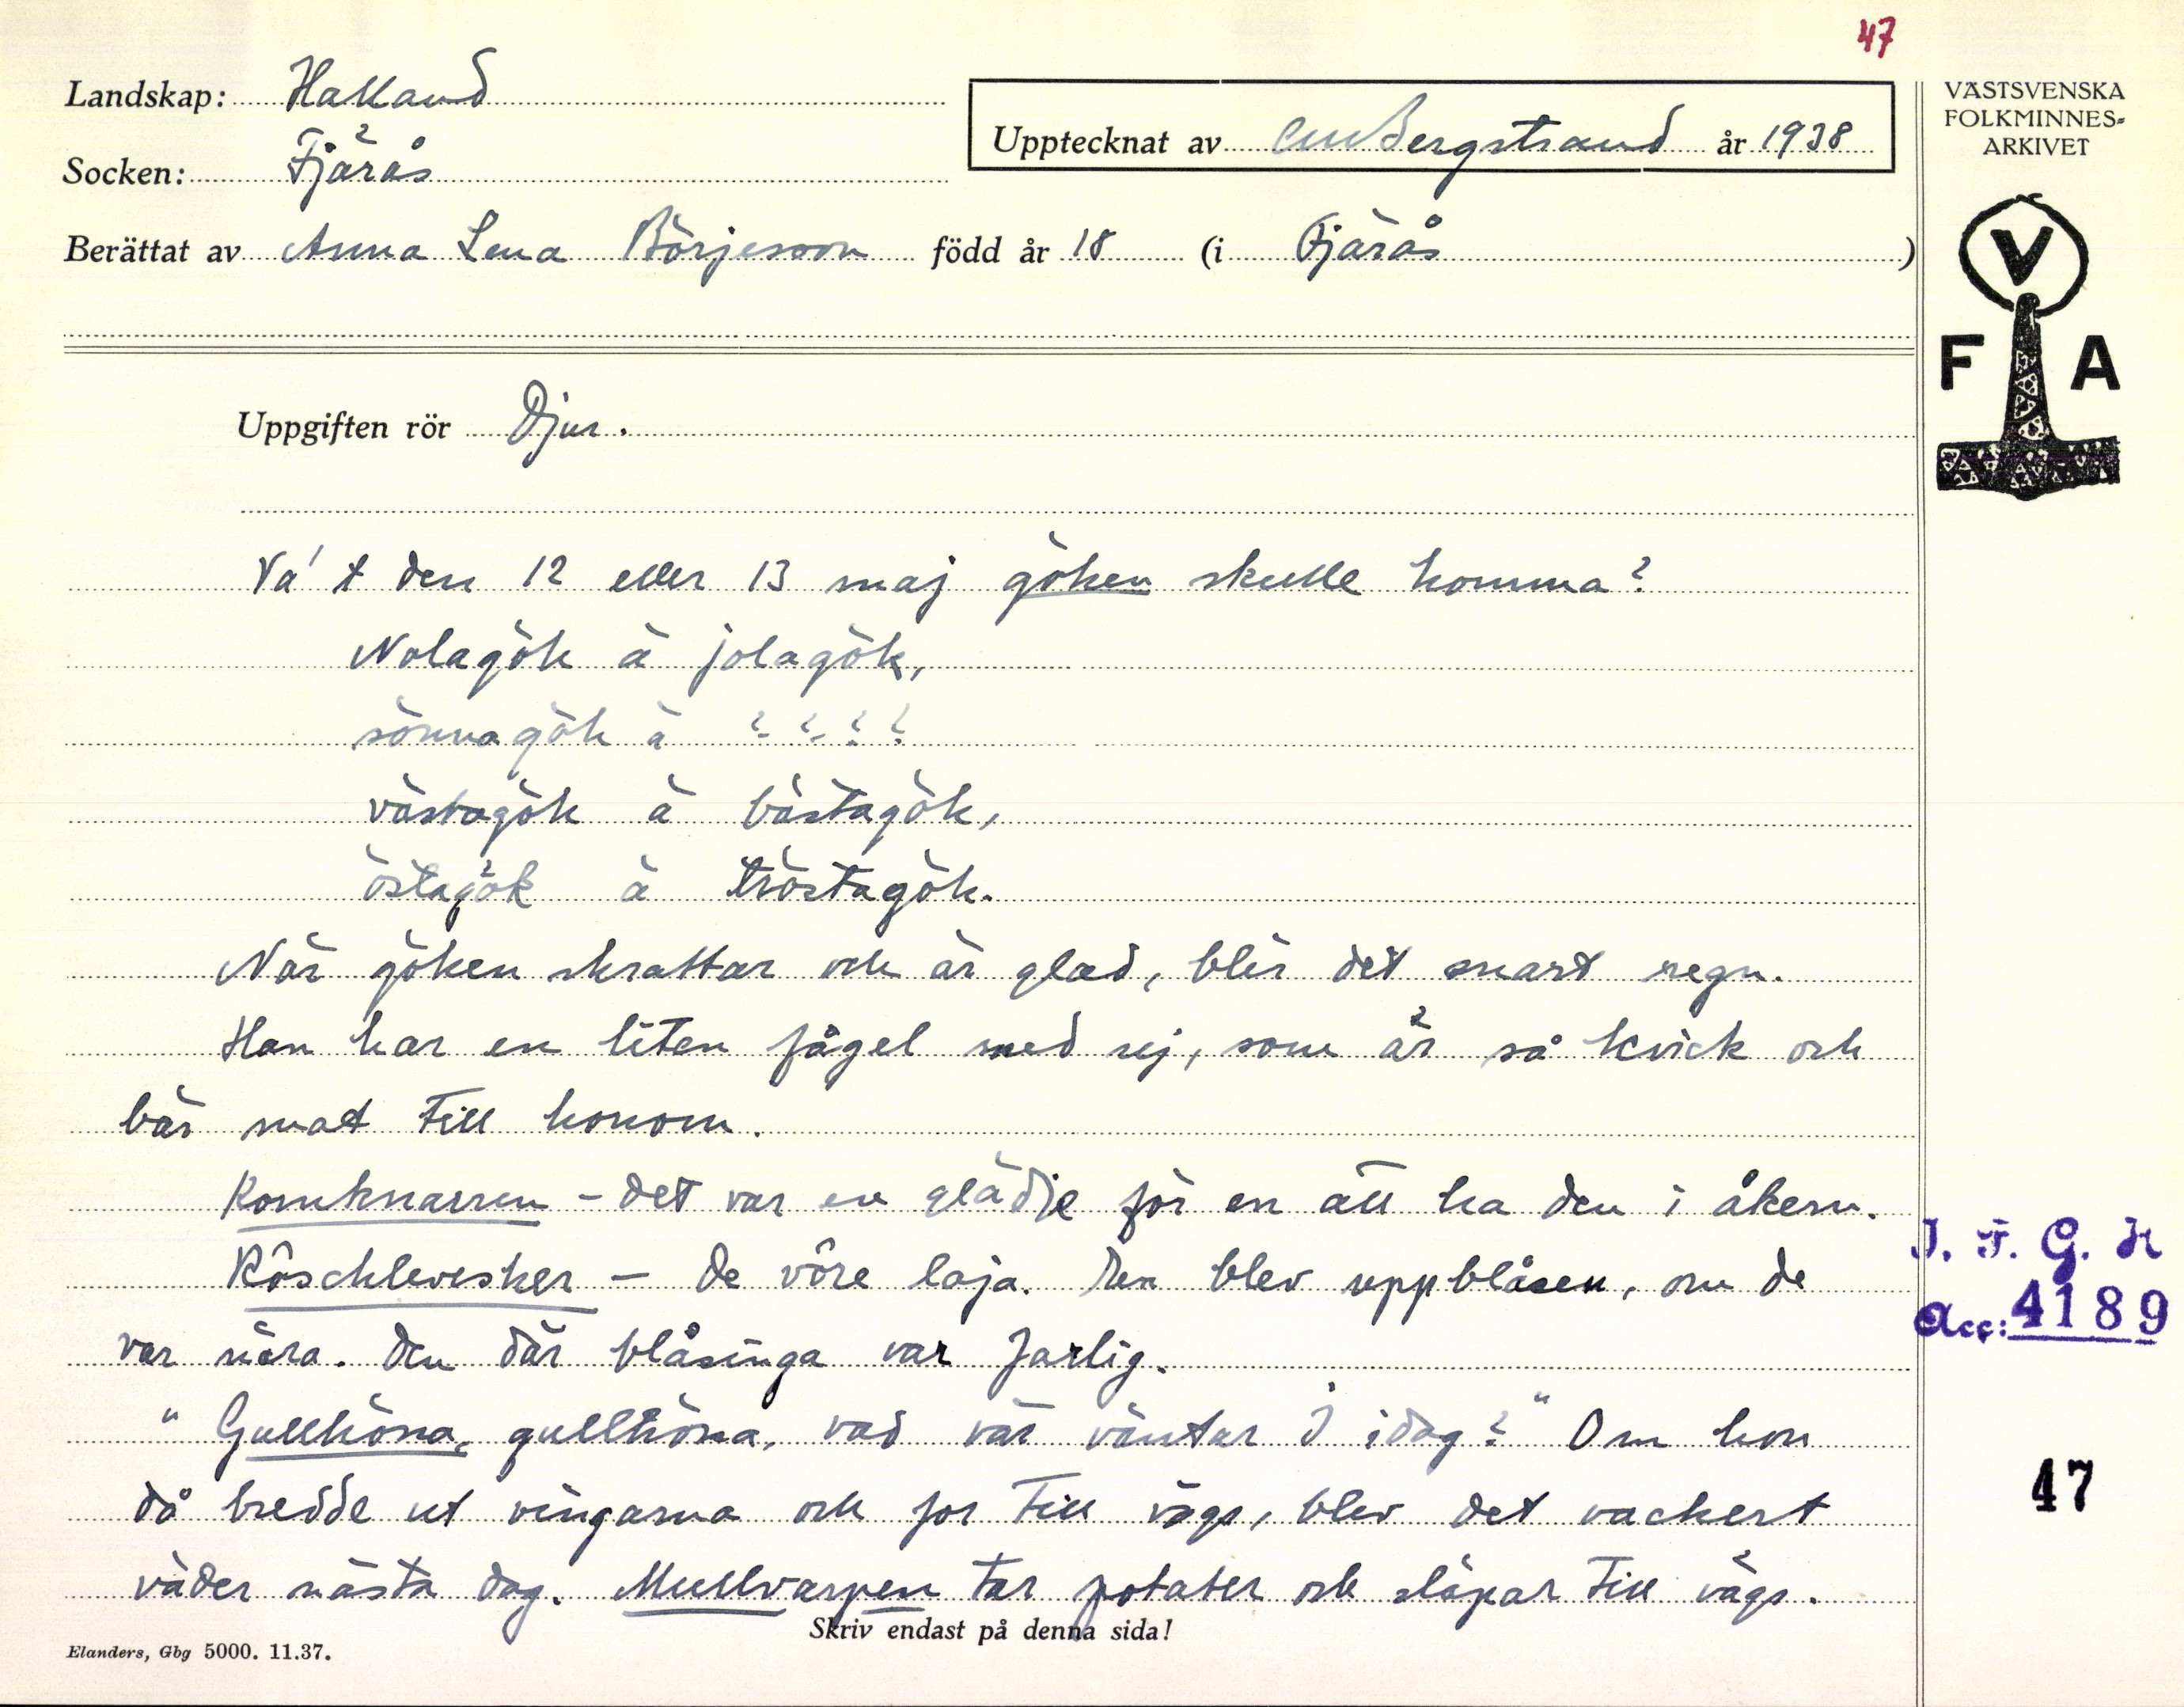 47
Landskap: Halland
Socken: Fjärås
Upptecknat av CMBergstrand år 1938
Berättat av Anna Lena Börjesson född år 18 (i Fjärås )
VÄSTSVENSKA
FOLKMINNES-
ARKIVET
V
F A
Uppgiften rör Djur.
Va' t den 12 eller 13 maj göken skulle komma?
Nolagök ä jolagök,
sönnagök ä ? ? ? ?
västagök ä bästagök,
östagök ä tröstagök.
När göken skrattar och är glad, blir det snart regn.
Han har en liten fågel med sej, som är så kvick och
bär mat till honom.
Kornknarren - det var en glädje för en att ha den i åkern.
Röschlevesker - de vöre laja. Den blev uppblåsen, om de
var nära. Den där blåsinga var farlig.
"Gullhöna, gullhöna, vad vär väntar I idag?" Om hon
då bredde ut vingarna och for till vägs, blev det vackert
väder nästa dag. Mullvarpen tar potater och släpar till vägs.
I. F. G. H
Acc: 4189
47
Skriv endast på denna sida!
Elanders, Gbg 5000. 11.37.